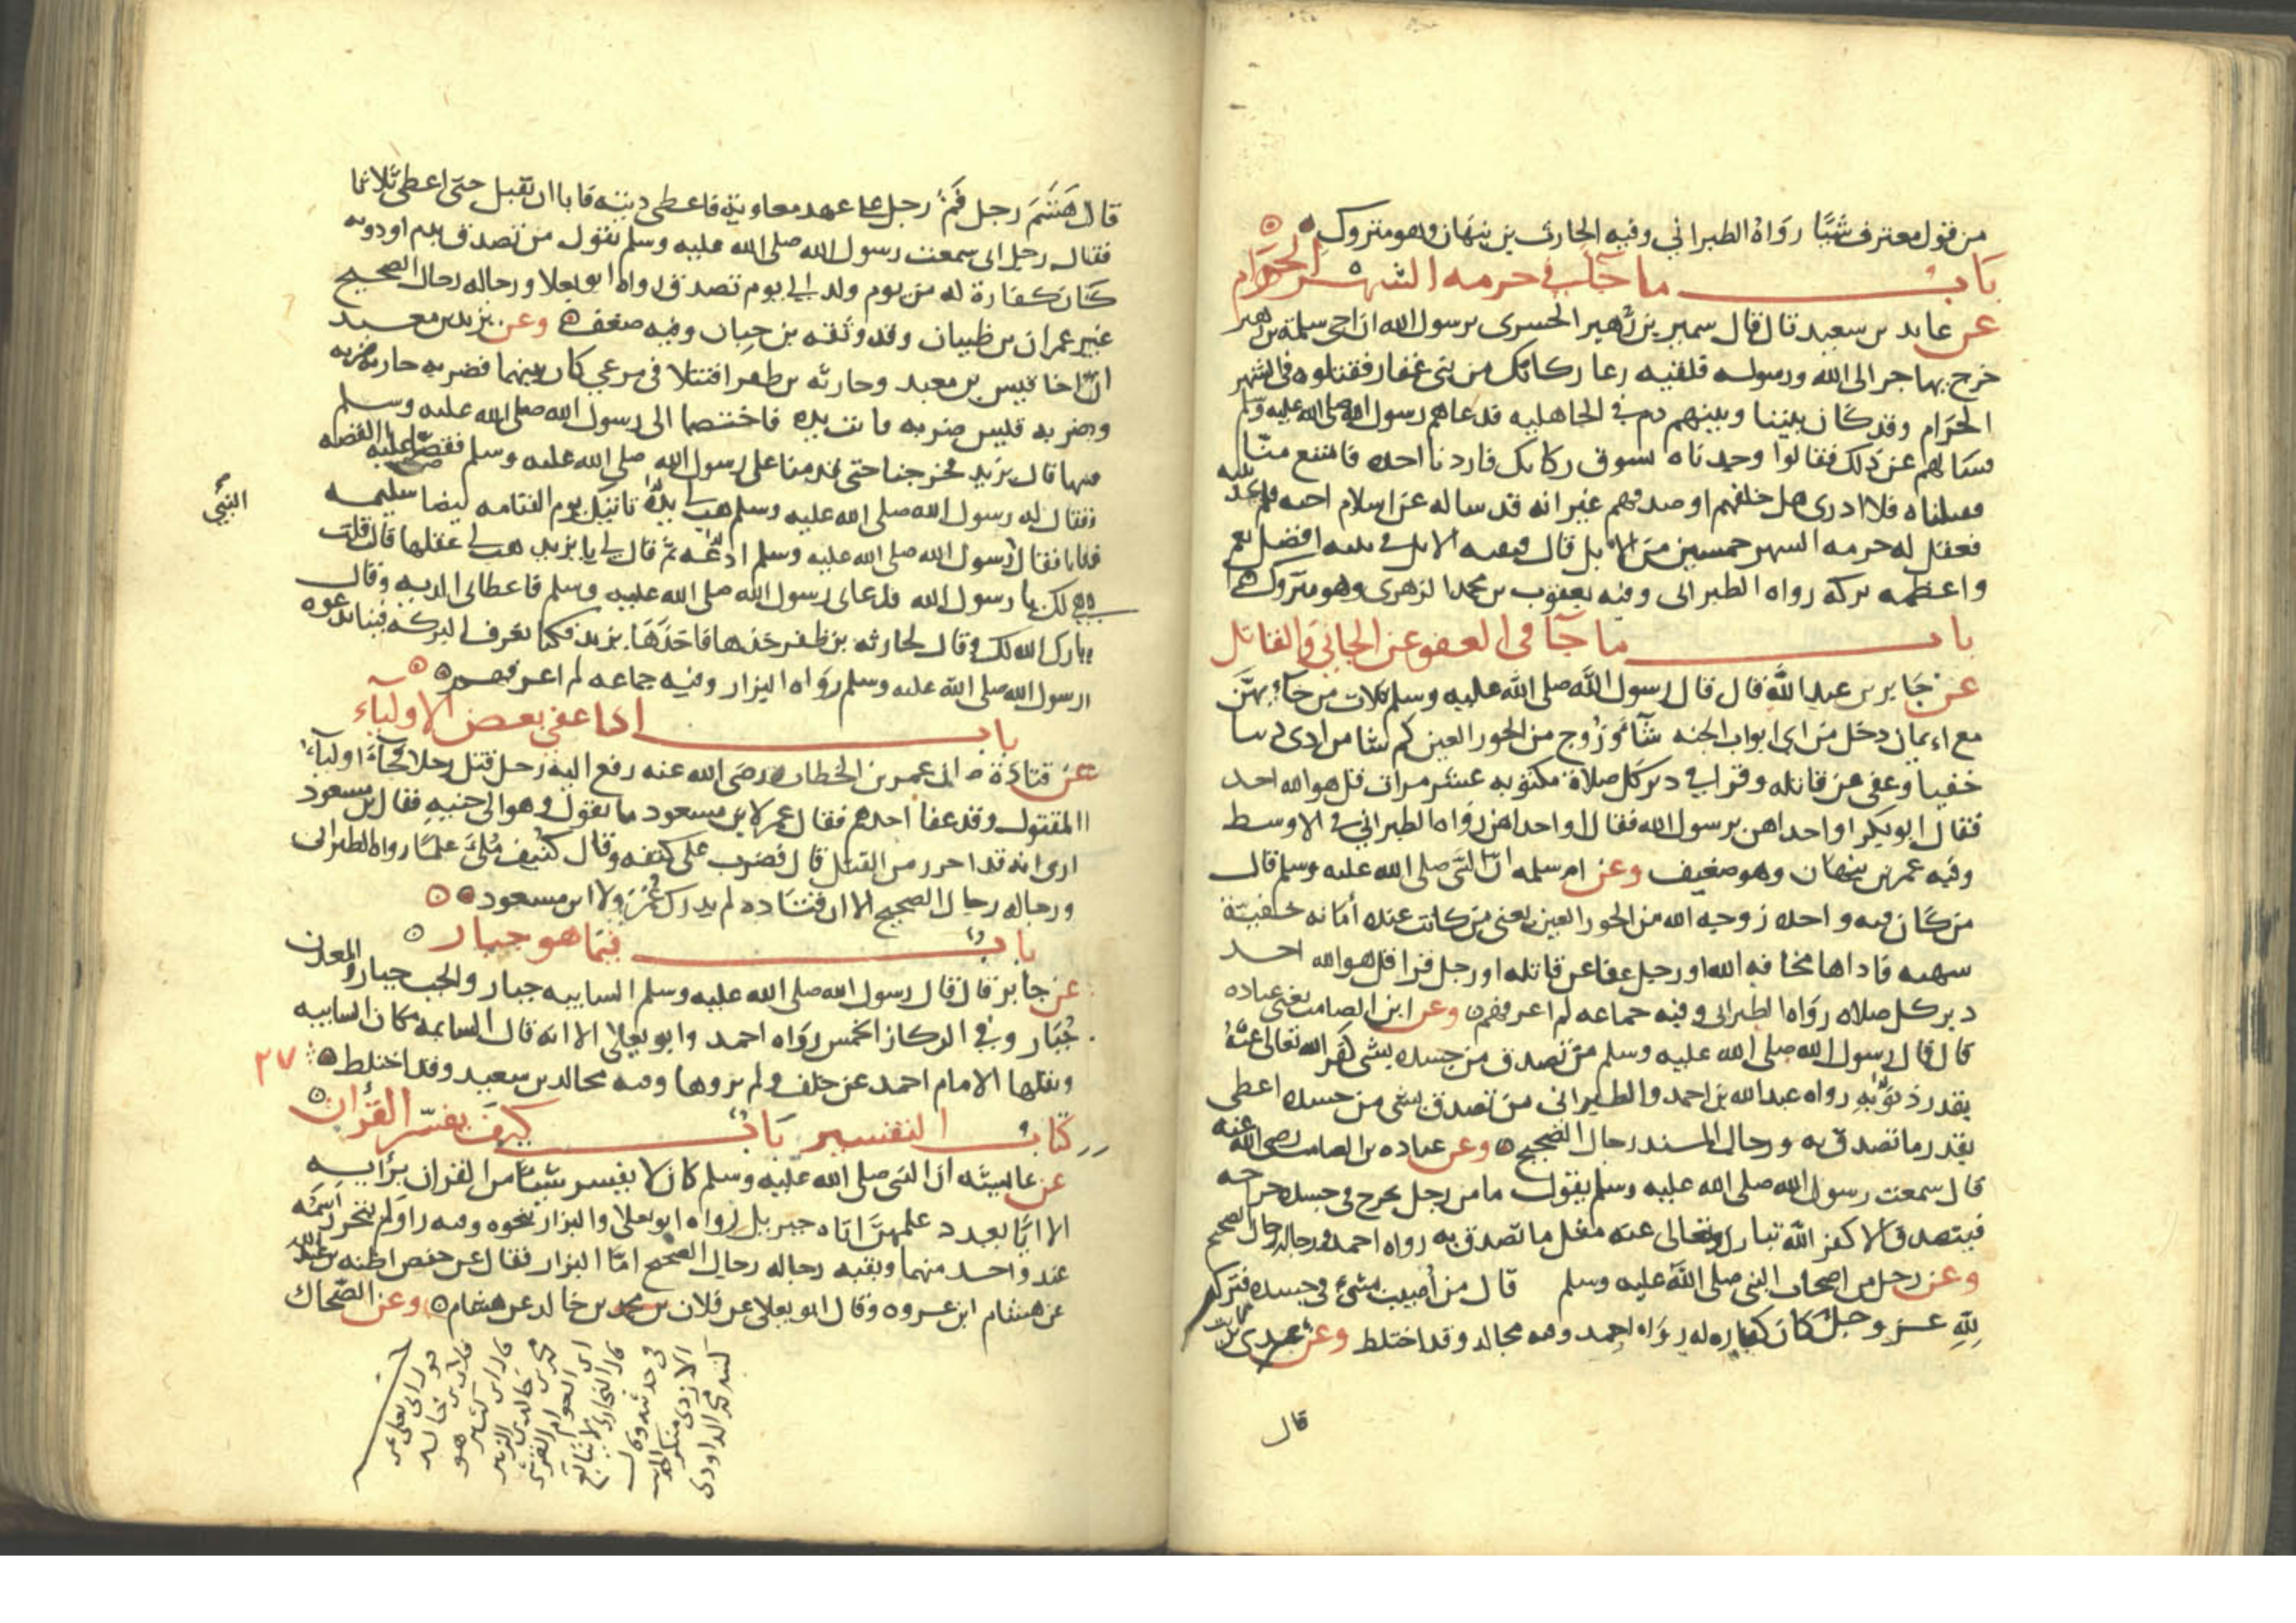 من قول معترف شيًا رواه الطبراني وفيه الحارث بن نبهان وهو متروك
باب ما جآ في حرمه الشهر الحرام
عن عابد بن سعيد قال قال سمير بن زهير الحسرى يرسول الله ان اخى سلمة بن زهير
خرج يهاجر الى الله ورسوله فلقيه رعا ركابك من بنى غفار فقتلوه فى الشهر
الحرام وقد كان بيننا وبينهم دم في الجاهليه فدعاهم رسول الله صلى الله عليه وسلم
فسالهم عن ذلك فقالوا وجدناه يسوق ركابك فاردنا اخده فامتنع منا
فقتلناه فلا ادرى هل خلفهم او صدقهم غير انه قد ساله عن اسلام اخيه فلم
فعقل له حرمه الشهر خمسين من الابل قال فبقيه الابل في افضل نعم
واعظمه بركه رواه الطبرانى وفيه يعقوب بن محمد الزهرى وهو متروك
باب ما جآ فى العفو عن الجاني والقاتل
عن جابر بن عبد الله قال قال رسول الله صلى الله عليه وسلم ثلاث من جآ بهن
مع ايمان دخل من اى ابواب الجنه شآ وزوج من الحور العين كم شا من ادى دينا
خفيا وعفى عن قاتله وقرا في دبر كل صلاة مكتوبه عشر مرات قل هو الله احد
فقال ابو بكر او احداهن يرسول الله فقال او احداهن رواه الطبراني في الاوسط
وفيه عمر بن نبهان وهو ضعيف وعن ام سلمه ان النبى صلى الله عليه وسلم قال
من كان فيه واحده زوجه الله من الحور العين يعنى من كانت عنده أمانه خفيّة
شهيه فاداها مخافه الله او رجل عفا عن قاتله او رجل قرا قل هو الله احد
دبر كل صلاه رواه الطبرانى وفيه جماعه لم اعرفهم وعن ابن الصامت يعنى عباده
قال قال رسول الله صلى الله عليه وسلم من تصدق من جسده بشى كفر الله تعالى عنه
بقدر ذنوبه رواه عبد الله بن احمد والطبرانى من تصدق بشى من جسده اعطى
بقدر ما تصدق به ورجال المسند رجال الصحيح وعن عباده بن الصامت رضى الله عنه
قال سمعت رسول الله صلى الله عليه وسلم يقول ما من رجل يجرح فى جسده جراحه
فيتصدق الا كفر الله تبارك وتعالى عنه مثل ما تصدق به رواه احمد ورجاله رجال الصحيح
وعن رجل من اصحاب النبى صلى الله عليه وسلم قال من أصيب بشئ في جسده فتركه
لله عز وجل كان كفاره له رواه احمد وفيه مجالد وقد اختلط وعن عدى بن ثابت
قال
قال هَتَمَ رجل فَم رجل على عهد معاوية فاعطى ديته فابا ان يقبل حتى اعطى ثلاثا
فقال رجل انى سمعت رسول الله صلى الله عليه وسلم يقول من تصدق بدم او دونه
كان كفارة له من يوم ولد الى يوم تصدق رواه ابو يعلا ورجاله رجال الصحيح
غير عمران بن ظبيان وقد وثقه بن حبان وفيه ضعف وعن يزيد بن معبد
ان اخا قيس بن معبد وحارثه بن ظفر اقتتلا فى مرعي كان بينهما فضربه حارثه ضربه
وضربه قيس ضربه فابنت يده فاختصما الى رسول الله صلى الله عليه وسلم
فيها قال يزيد فخرجنا حتى قدمنا على رسول الله صلى الله عليه وسلم فقصا عليه القصه
فقال له رسول الله صلى الله عليه وسلم هب لي يده تاتيك يوم القيامه بيضا سليمه
النبي
فابا فقال رسول الله صلى الله عليه وسلم ادعه ثم قال لي يا يزيد هب لي عقلها قال قلت
هي لك يا رسول الله فدعاى رسول الله صلى الله عليه وسلم فاعطانى الديه وقال
بارك الله لك وقال لحارثه بن ظفر خذها فاخذها يزيد فكنا نعرف البركه فينا بدعوه
رسول الله صلى الله عليه وسلم رواه البزار وفيه جماعه لم اعرفهم
باب اذا عفى بعض الاوليآء
عن قتادة ان عمر بن الخطاب رضى الله عنه رفع اليه رجل قتل رجلا فجآء اوليآء
المقتول وقد عفا احدهم فقال عمر لابن مسعود ما تقول وهو الى جنبه فقال بن مسعود
ارى انه قد احرز من القتل قال فضرب على كتفه وقال كنيف مُلئ علمًا رواه الطبرانى
ورجاله رجال الصحيح الا ان قتاده لم يدرك عمر ولا ابن مسعود
باب فيما هو جبار
عن جابر قال قال رسول الله صلى الله عليه وسلم السايبه جبار والجب جبار والمعدن
جُبَار وفي الركاز الخمس رواه احمد وابو يعلى الا انه قال السايمه مكان السايبه
ونقلها الامام احمد عن خلف ولم يروها وفيه مجالد بن سعيد وقد اختلط
٢٧
كتاب التفسير باب كيف يفسر القرأن
عن عايشه ان النبى صلى الله عليه وسلم كان لا يفسر شيًا من القران برأيه
الا ايًا بعدد علمهن اياه جبريل رواه ابو يعلى والبزار بنحوه وفيه راو لم يتحرر اسمه
عند واحد منهما وبقيه رجاله رجال الصحيح امّا البزار فقال عن حفص اظنه بن عبد الله
عن هشام ابن عروه وقال ابو يعلا عن فلان بن محمد بن خالد عن هشام وعن الضحاك
قوله ابى يعلى عن
فلان بن خالد
قال ابن كثير هو
محمد بن خالد بن الزبير
ابن العوام القرشى
قال البخارى لا يتابع
فى حديثه وقال
الازدى منكر الحديث
كتبه محمد الداودى